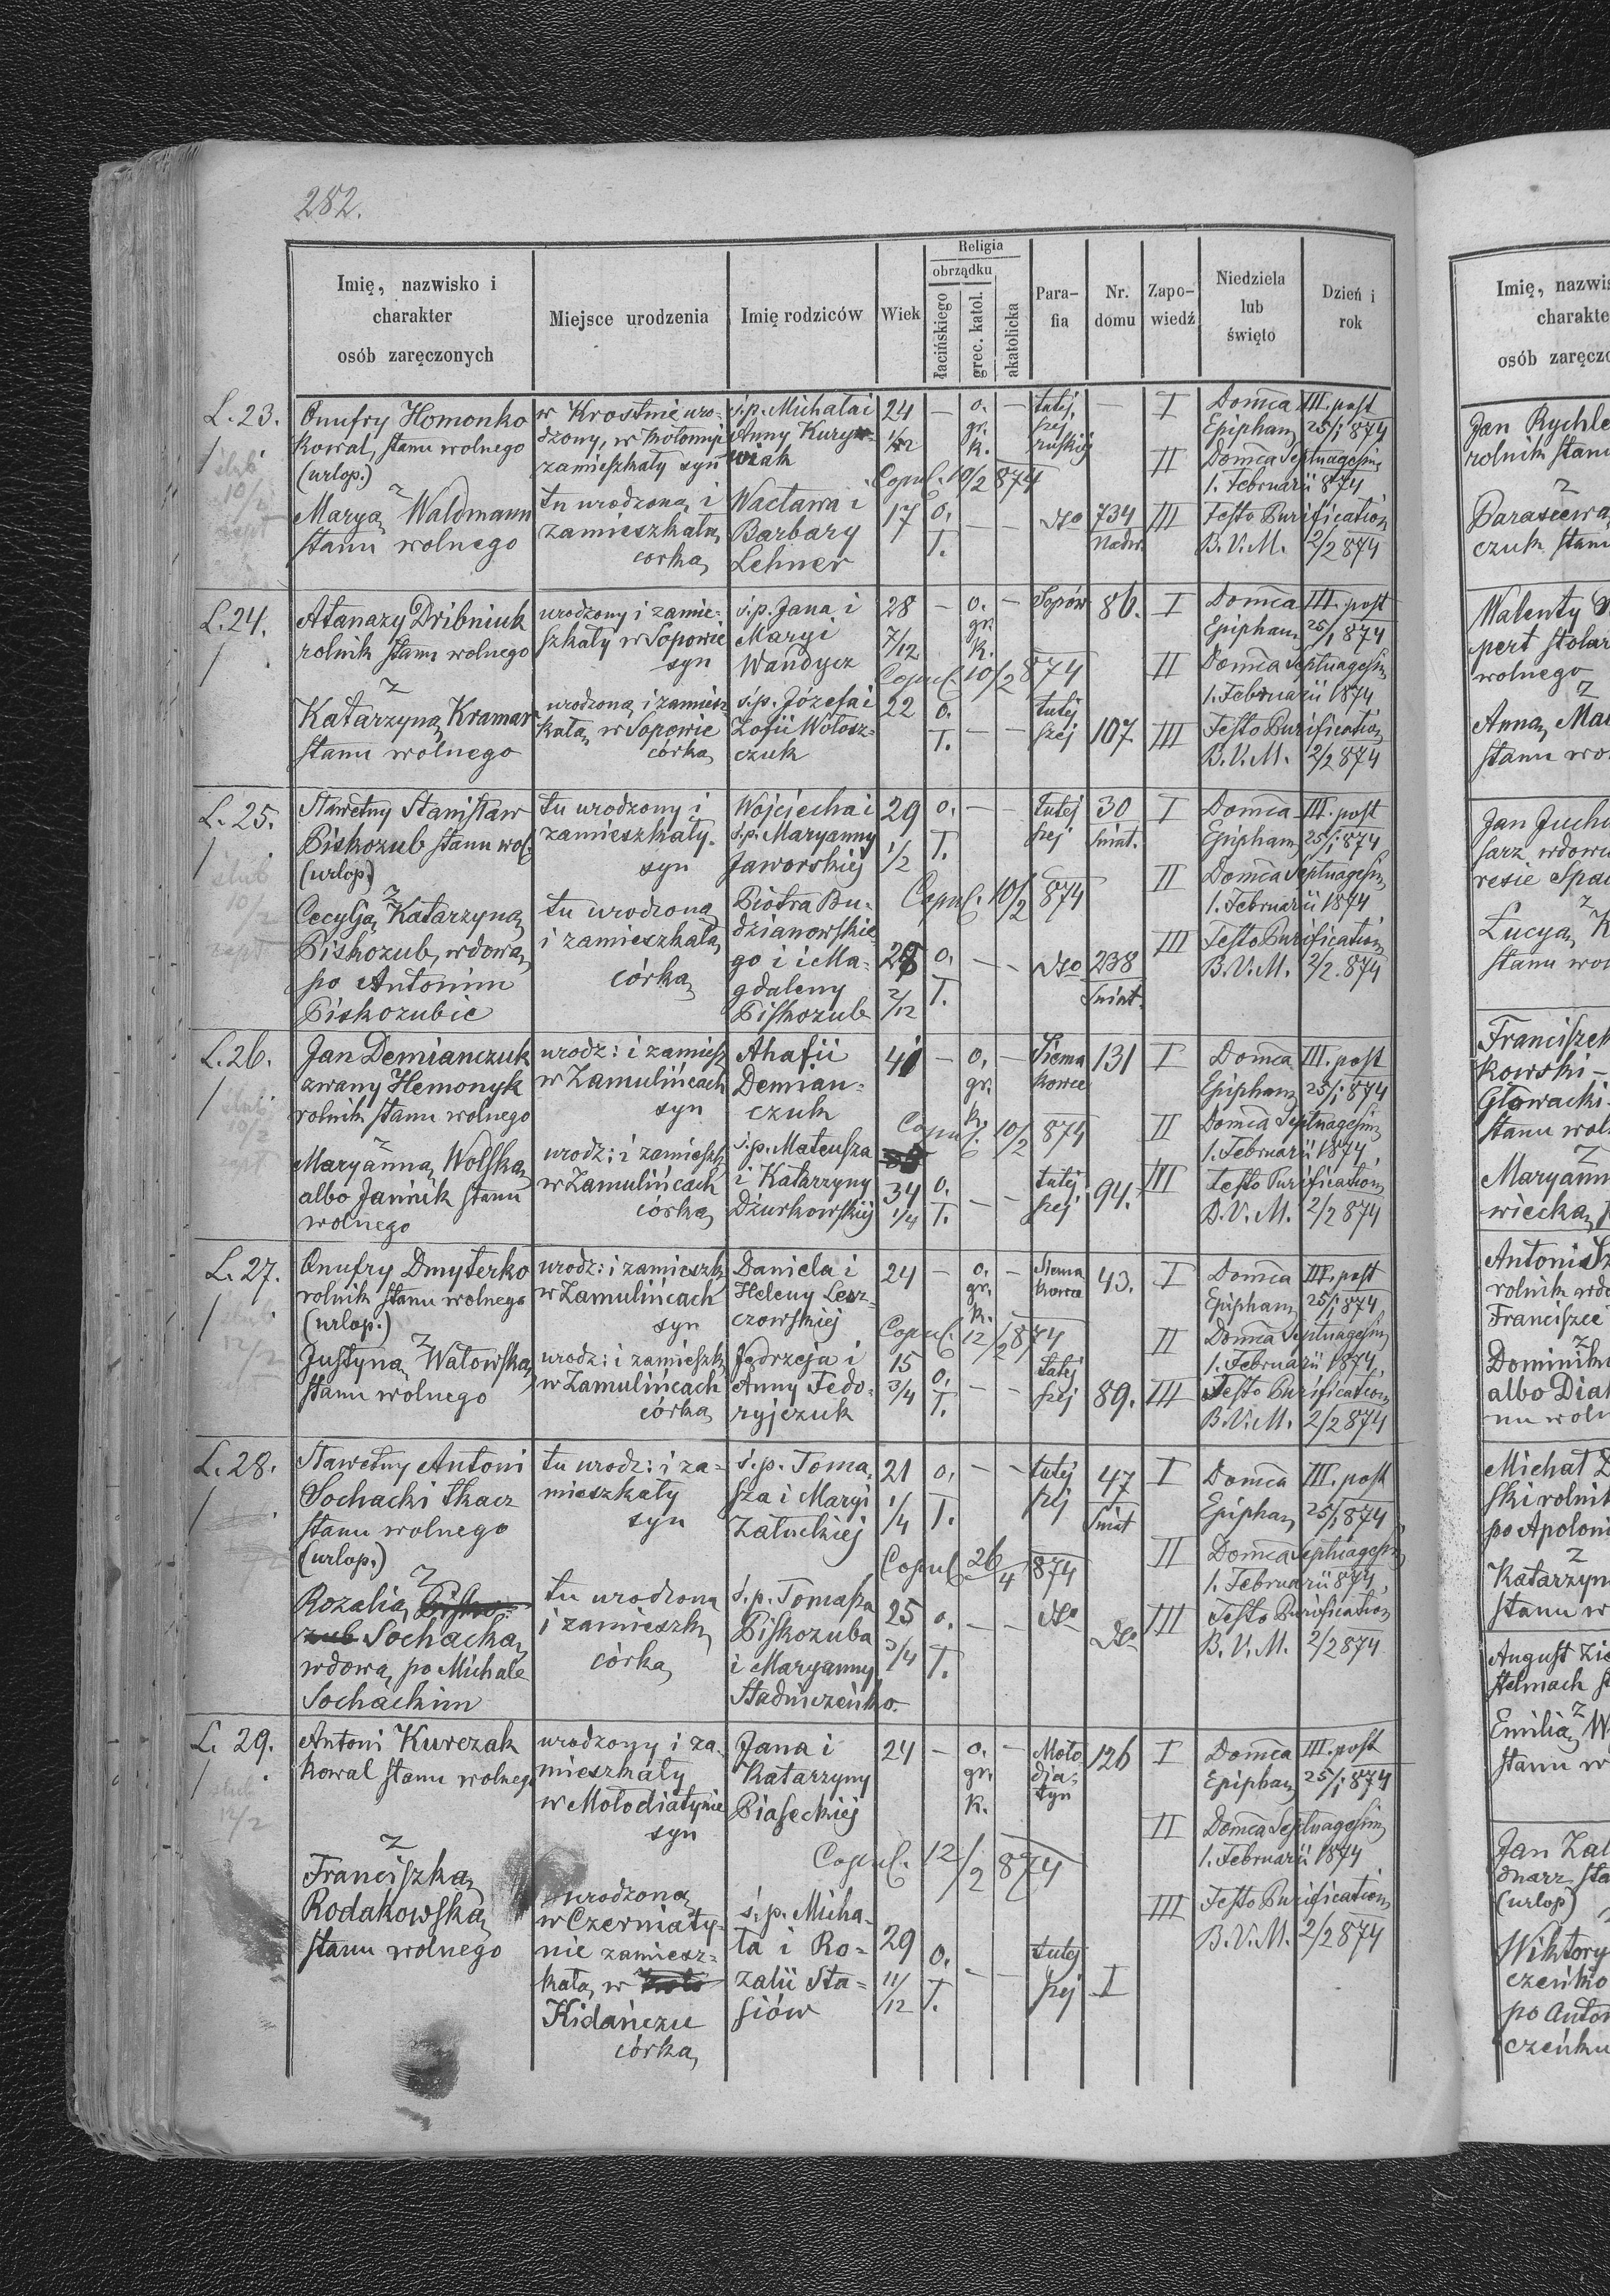 282.
Imię, nazwisko i charakter osób zaręczonych
Miejsce urodzenia
Imię rodziców
Wiek
Religia
obrządku
łacińskiego
grec. katol.
akatolicka
Para-fia
Nr. domu
Zapo-wiedź
Niedziela lub święto
Dzień i rok
L. 23.
Onufry Homonko
kowal, stanu wolnego
(urlop.)
z
Maryą Waldmann
stanu wolnego
w Krostnie uro-
dzony, w Kołomyi
zamieszkały syn
tu urodzoną i
zamieszkałą
corką
ś.p. Michała i
Anny Kury-
wiak
Wacława i
Barbary
Lehner
24
1/12
17
o.
gr.
k.
o.
Ł.
Copul. 10/2 874
tutej.
szej
ruskiej
dto
734
Nadw.
I
II
III
Domca III. post
Epiphan 25/1 874
Domca Septuagesim
1. Februarii 874
Festo Purification
B. V. M. 2/2 874
L. 24.
Atanazy Dribniuk
rolnik stanu wolnego
z
Katarzyną Kramar
stanu wolnego
urodzony i zamie-
szkały w Sopowie
syn
urodzoną i zamiesz-
kałą w Sopowie
córką
ś.p. Jana i
Maryi
Wandycz
ś.p. Józefa i
Zofii Wołosz-
czuk
28
7/12
22
o.
gr.
k.
o.
Ł.
Copul. 10/2 874
Sopów
tutej
szej
86.
107
I
II
III
Domca III. post
Epiphan 25/1 874
Domca Septuagesim
1. Februarii 1874
Festo Purification
B. V. M. 2/2 874
L. 25.
Sławetny Stanisław
Piskozub stanu wol.
(urlop)
z
Cecylją Katarzyną
Piskozub, wdową
po Antonim
Piskozubie
tu urodzony i
zamieszkały.
syn
tu urodzoną
i zamieszkałą
córką
Wojciecha i
ś.p. Maryanny
Jaworskiej
Piotra Bu-
dzianowskie-
go i i Ma-
gdaleny
Piskozub
29
1/2
28
2/12
o.
Ł.
o.
Ł.
Copul. 10/2 874
tutej
szej
dto
30
Śniat.
238
Śniat.
I
II
III
Domca III. post
Epiphan 25/1 874
Domca Septuagesim
1. Februarii 1874
Festo Purification
B. V. M. 2/2. 874
L. 26.
Jan Demianczuk
zwany Hemonyk
rolnik stanu wolnego
z
Maryanną Wolską
albo Jannik stanu
wolnego
urodz: i zamiesz
w Zamulińcach
syn
urodz: i zamieszk
w Zamulińcach
córką
Ahafii
Demian-
czuk
ś.p. Mateusza
i Katarzyny
Dżurkowskiej
41
34
1/4
o.
gr.
k.
o.
Ł.
Copul. 10/2 874
Siema
kowce
tutej
szej
131
94.
I
II
III
Domca III. post
Epiphan 25/1 874
Domca Septuagesim
1. Februarii 1874
Festo Purification
B. V. M. 2/2 874
L. 27.
Onufry Dmyterko
rolnik stanu wolnego
(urlop.)
z
Justyną Watowską
stanu wolnego
urodz: i zamieszk
w Zamulińcach
syn
urodz: i zamieszk
w Zamulińcach
córką
Daniela i
Heleny Lesz-
czowskiej
Jędrzeja i
Anny Fedo-
ryjczuk
24
15
3/4
o.
gr.
k.
o.
Ł.
Copul. 12/2 874
Siema
kowce
tutej
szej
43.
89.
I
II
III
Domca III. post
Epiphan 25/1 874
Domca Septuagesim
1. Februarii 1874
Festo Purification
B. V. M. 2/2 874
L. 28.
Sławetny Antoni
Sochacki tkacz
stanu wolnego
(urlop.)
z
Rozalią Pisko-
zub Sochacką
wdową po Michale
Sochackim
tu urodz: i za-
mieszkały
syn
tu urodzoną
i zamieszk
córką
ś.p. Toma-
sza i Maryi
Załuckiej
ś.p. Tomasza
Piskozuba
i Maryanny
Stadniczeńko.
21
1/4
25
3/4
o.
Ł.
o.
Ł.
Copul 26/4 874
tutej
szej
dto
47
Śniat
dto
I
II
III
Domca III. post
Epiphan 25/1 874
Domca Septuagesim
1. Februarii 874
Festo Purification
B. V. M. 2/2 874
L. 29.
Antoni Kurczak
kowal stanu wolnego
z
Franciszką
Rodakowską
stanu wolnego
urodzony i za-
mieszkały
w Mołodiatynie
syn
urodzoną
w Czerniaty-
nie zamiesz-
kałą w
Kidańczu
córką
Jana i
Katarzyny
Piaseckiej
ś.p. Micha-
ła i Ro-
zalii Sta-
siów
24
29
11/12
o.
gr.
k.
o.
Ł.
Copul. 12/2 874
Moło
dja-
tyn
tutej
szej
126
I
I
II
III
Domca III. post
Epiphan 25/1 874
Domca Septuagesim
1. Februarii 1874
Festo Purification
B. V. M. 2/2 874
Imię, nazwis
charakte
osób zaręczo
Jan Rychle
rolnik stanu
z
Parascewą
czuk stanu
Walenty
pert stolarz
wolnego
z
Anną Ma
stanu wo
Jan Jucho
sarz wdowi
resie Spa
z
Łucyą K
stanu wol
Franciszek
kowski -
Głowacki
stanu wol
z
Maryann
wiecką
Antoni
rolnik wdo
Franciszce
z
Dominik
albo Diak
nu woln
Michał D
ski rolnik
po Apoloni
z
Katarzyn
stanu w
August Zie
stelmach
z
Emilią W
stanu w
Jan Zal
dnarz sta
(urlop)
Wiktory
czeńko
po Anton
czeńku